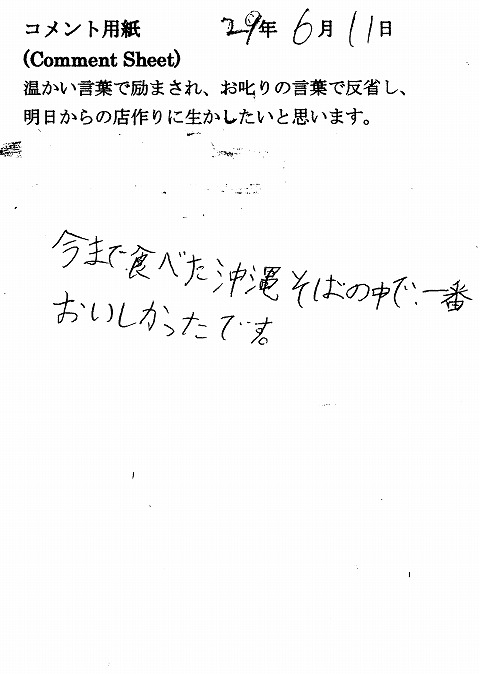 コメント用紙 29年 6月 11日
(Comment Sheet)
温かい言葉で励まされ、お叱りの言葉で反省し、
明日からの店作りに生かしたいと思います。
今まで食べた沖縄そばの中で、一番
おいしかったです。